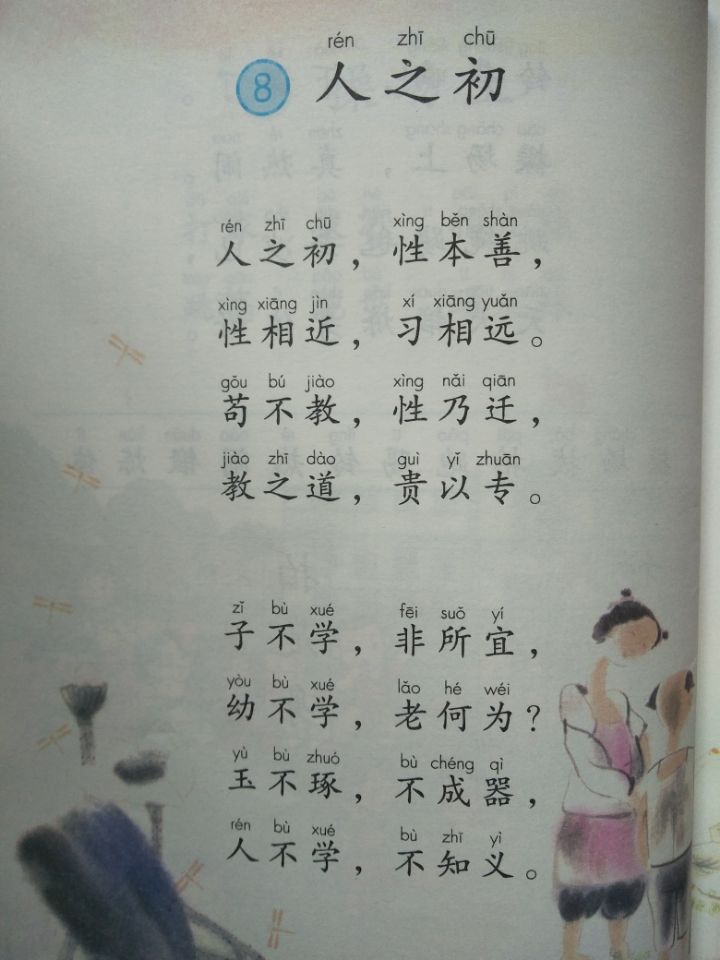 rén zhī chū
8 人之初
rén zhī chū xìng běn shàn
人之初，性本善，
xìng xiāng jìn xí xiāng yuǎn
性相近，习相远。
gǒu bú jiào xìng nǎi qiān
苟不教，性乃迁，
jiào zhī dào guì yǐ zhuān
教之道，贵以专。
zǐ bù xué fēi suǒ yí
子不学，非所宜，
yòu bù xué lǎo hé wéi
幼不学，老何为？
yù bù zhuó bù chéng qì
玉不琢，不成器，
rén bù xué bù zhī yì
人不学，不知义。